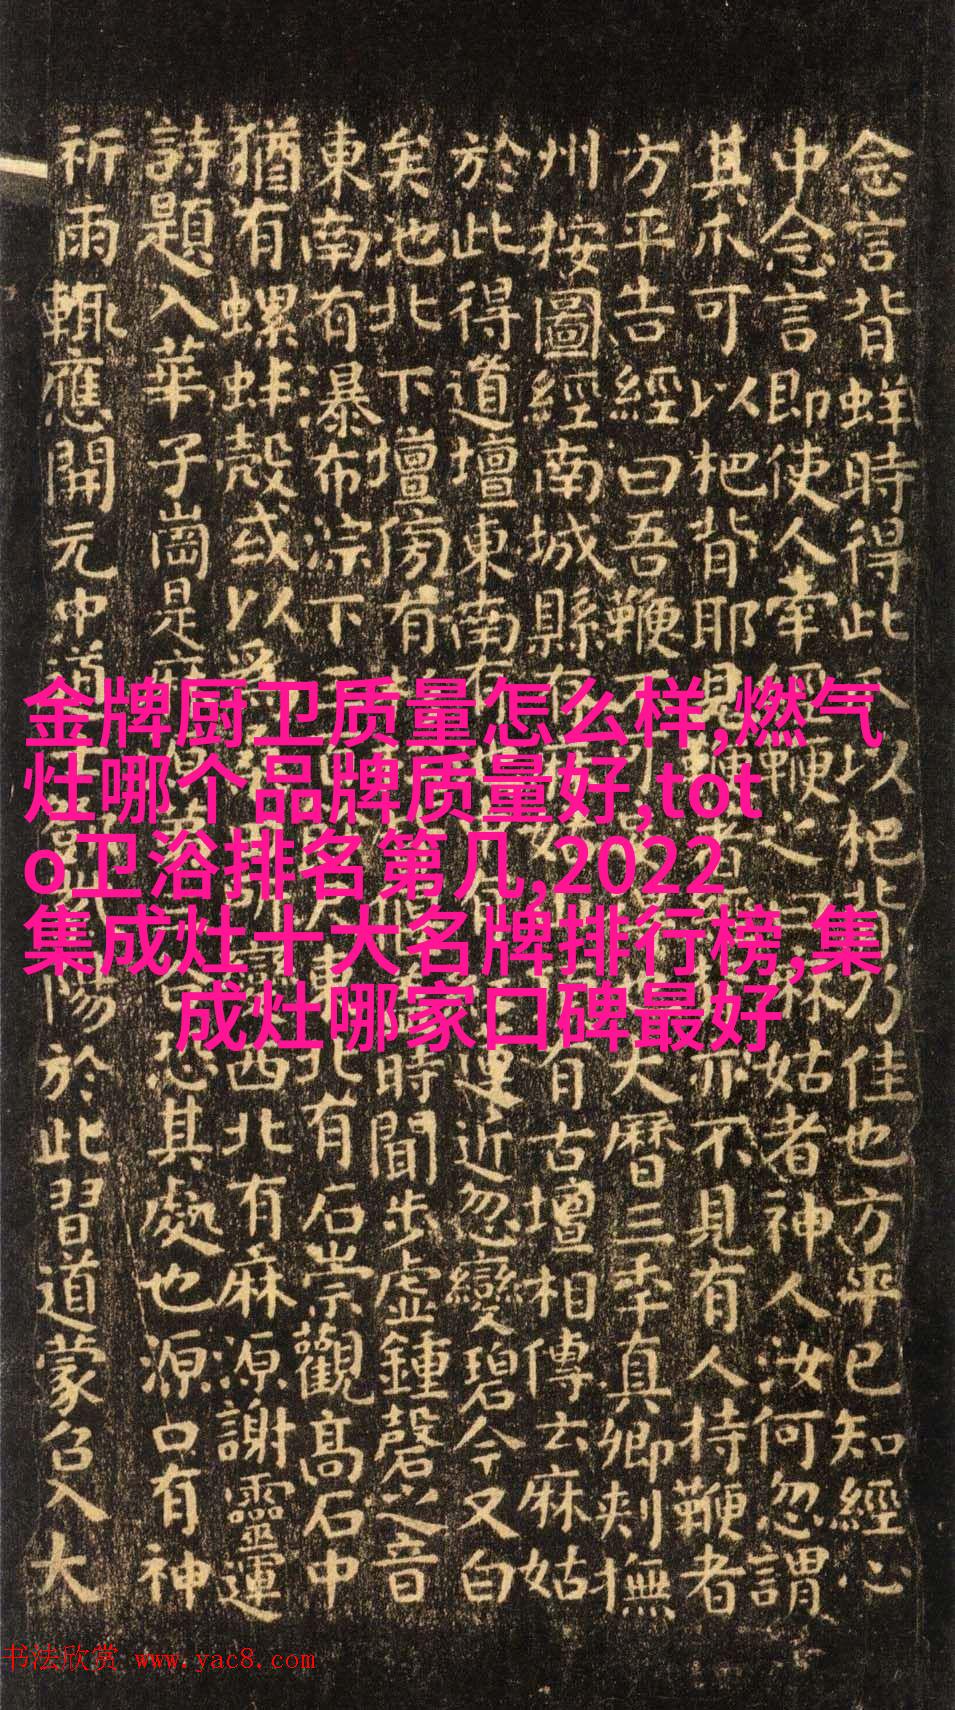 念言背蛘時得此以杷背乃佳也方平已知經心
中念言即使人牽鞭之姑者神人汝何忽謂
其爪可以杷背耶見鞭著亦不見有人持鞭者
方平告經曰吾鞭不可大曆三年真卿刺撫
州按圖經南城縣有有古壇相傳云麻姑
於此得道壇東南有蓮近忽變碧今又白
矣池北下壇傍有時聞步虛鍾磬之音
東南有瀑布淙下三北有石崇觀高石中
猶有螺蚌殻或以為西北有麻源謝靈運
詩題入華子崗是麻恐其處也源口有神
祈雨輒應開元中道陽於此習道蒙召入大
金牌厨卫质量怎么样,燃气
灶哪个品牌质量好,tot
o卫浴排名第几,2022
集成灶十大名牌排行榜,集
成灶哪家口碑最好
书法欣赏 www.yac8.com